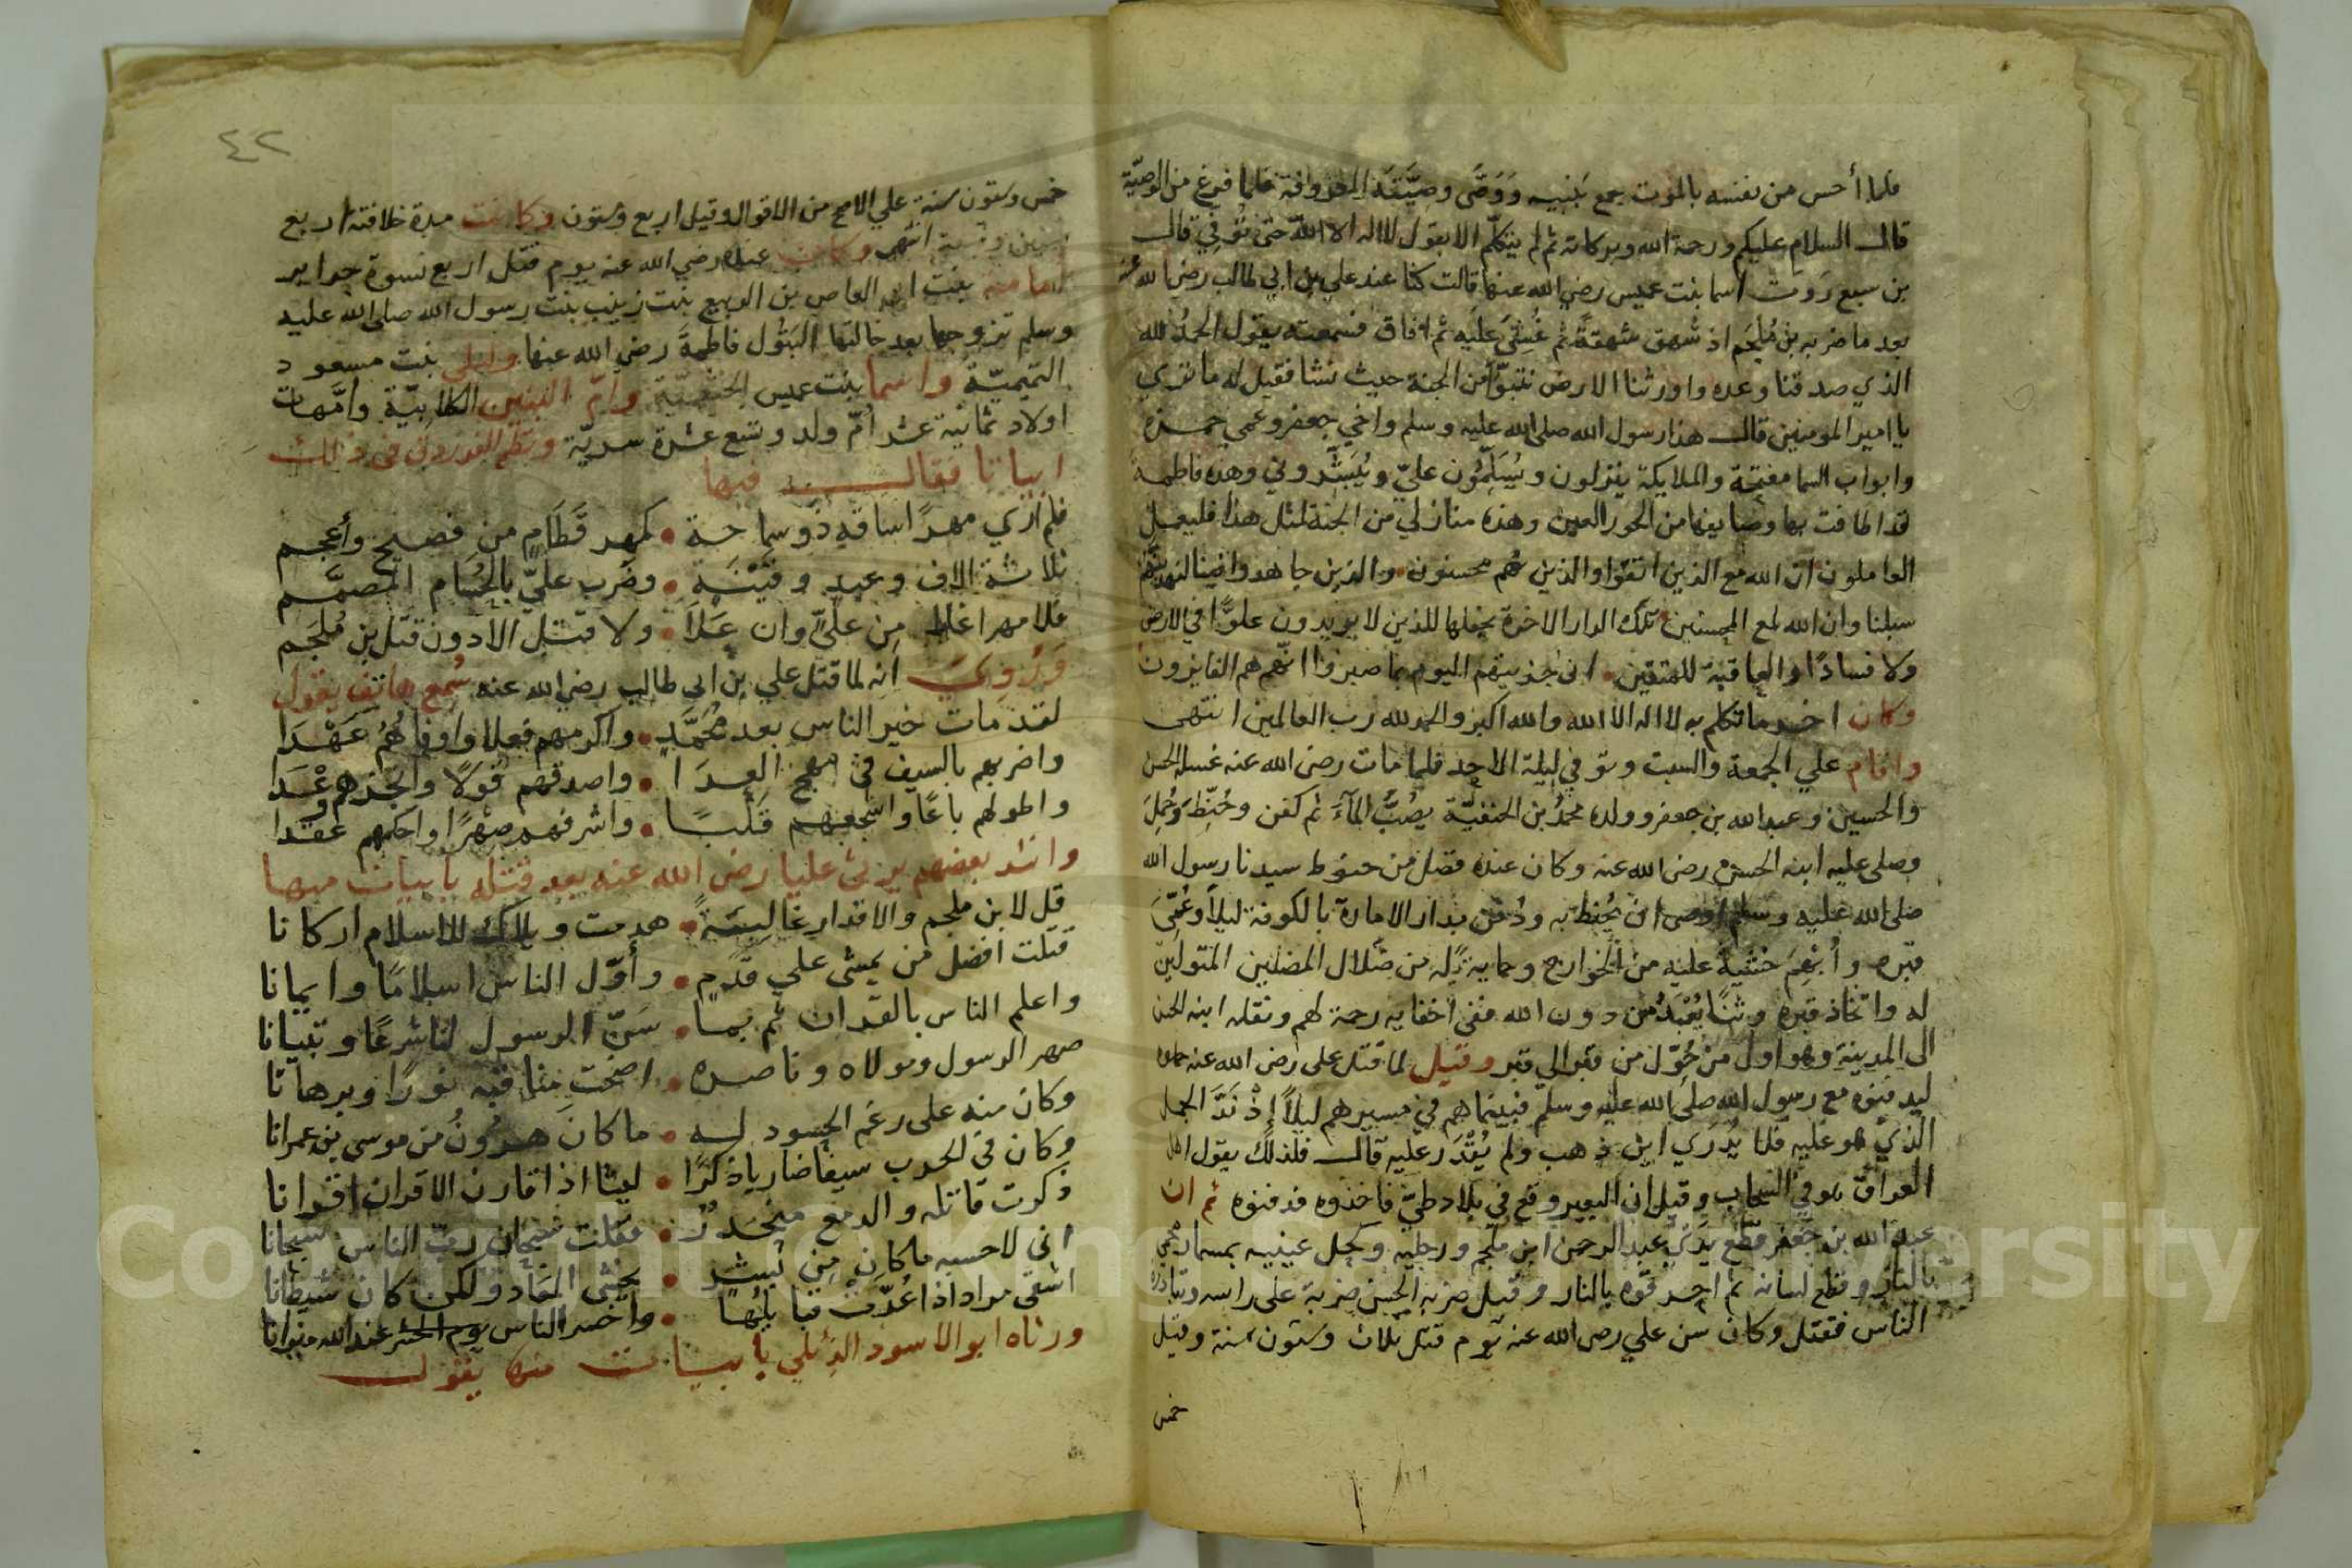 فلما أحس من نفسه بالموت جمع بَنِيه وَوَصَّى وصيَّتَه المعروفة فلما فرغ من الوصيّة
قال السلام عليكم ورحمة الله وبركاته ثم لم يتكلّم الا بقول لا اله الا الله حتى تُوفِي قال
بن سبع رَوَت اسما بنت عميس رضي الله عنها قالت كنا عند علي بن ابي طالب رضي الله عنه
بعد ما ضربه بن مُلْجَم اذ شهق شهقةً ثم غُشِيَ عليه ثم افاق فسمعته يقول الحمدُ لله
الذي صدقنا وعده واورثنا الارض نتبوّأ من الجنة حيث نشا فقيل له ما تري
يا امير المومنين قال هذا رسول الله صلى الله عليه وسلم واخي جعفر وعمي حمزة
وابواب السما مفتحة والملايكة ينزلون ويُسَلِّمُون عليّ ويُبَشِّروني وهذه فاطمه
قد اطافت بها وصايفها من الحور العين وهذه منازلي من الجنة لمثل هذا فليعمل
العاملون ان الله مع الذين اتقوا والذين هُم محسنون والذين جاهدوا فينا لنهدينّهُم
سبلنا وان الله لمع المحسنين تلك الدار الاخرة نجعلها للذين لا يريدون علوًّا في الارض
ولا فسادًا والعاقبة للمتقين اني جزيتهم اليوم بما صبروا انّهم هم الفايزون
وكان اخر ما تكلم به لا اله الا الله والله اكبر والحمد لله رب العالمين انتهى
واقام علي الجمعة والسبت وتوفي ليلة الاحد فلما مات رضي الله عنه غسله الحسن
والحسين وعبد الله بن جعفر وولده محمدُ بن الحنفيّة يصُبُّ المآءَ ثم كفن وحُنِّطَ وحُمِلَ
وصلى عليه ابنه الحسن رضي الله عنه وكان عنده فضل من حنوط سيدنا رسول الله
صلى الله عليه وسلم اوصى ان يُحنط به ودُفن بدار الامارة بالكوفة ليلاً وعُمِّيَ
قبره وأُبْهِمَ خشيةً عليه من الخوارج وحماية له من ضلال المضلين المتولين
له واتخاذ قبره وثنًا يُعْبَدُ من دون الله ففي اخفايه رحمة لهم ونقله ابنه الحسن
الى المدينة وهو اول من حُوِّل من قبر الي قبر وقيل لما قتل علي رضي الله عنه حملوه
ليدفنوه مع رسول الله صلى الله عليه وسلم فبينما هم في مسيرهم ليلاً إذْ نَدَّ الجمل
الذي هو عليه فلا يُدْرَي اين ذهب ولم يُقْدَر عليه قال فلذلك يقول اهل
العراق هو في السحاب وقيل ان البعير وقع في بلاد طيّ فاخذوه فدفنوه ثم ان
عبد الله بن جعفر قطّع يَدَيْ عبد الرحمن ابن ملجم ورجليه وكحل عينيه بمسمار محمي
بالنار وقطع لسانه ثم احرقوه بالنار وقيل ضربه الحسن ضربة على راسه وتبادره
الناس فقتل وكان سن علي رضي الله عنه يوم قتل ثلاث وستون سنة وقيل
خمس
٤٢
خمس وستون سنة علي الاصح من الاقوال وقيل اربع وستون وكانت مدة خلافته اربع
سنين وتسعة انتهى وكان عنده رضي الله عنه يوم قتل اربع نسوة حراير
امامة بنت ابو العاص بن الربيع بنت زينب بنت رسول الله صلى الله عليه
وسلم تزوجها بعد خالتها البَتُول فاطمةَ رضي الله عنها وليلى بنت مسعود
التميميّة واسما بنت عميس الخثعميّة وامّ البنين الكلابيّة وامّهات
اولاد ثمانية عشر أُمّ ولد وتسع عشرة سريّة ونظم الفرزدق في ذلك
ابياتا فقال فيها
فلم أري مهرًا ساقه ذو سماحة • كمهر قَطَامٍ من فصيح وأعجم
ثلاثة الاف وعبد وقَيْنَةٍ • وضَرب عليٍّ بالحُسَام المصمَّم
فلا مهر اغلا مِن عليٍّ وان غَلاَ • ولا قتل الا دون قتل بن مُلجَم
وَرُوِيَ انه لما قتل علي بن ابي طالب رضي الله عنه سُمِع هاتف يقول
لقد مات خير الناس بعد مُحمَّدٍ • واكرمهم فعلا واوفاهُمُ عَهْدَا
واضربهم بالسيف في مهج العِدَا • واصدقهم قولًا وانجزهم وعْدَا
واطولهم باعًا واشجعهم قَلْبًا • واشرفهم صهرًا واحكمهم عقدا
وانشد بعضهم يرثى عليا رضي الله عنه بعد قتله بابيات منها
قل لابن ملجم والاقدار غالبَةً • هدمت ويلك للاسلام اركانا
قتلت افضل من يمشى علي قَدَمٍ • وأوّل الناس اسلامًا وايمانا
واعلم الناس بالقران ثم بما • سَنّ الرسول لنا شرعًا وتبيانا
صهر الرسول ومولاه وناصره • اضحت مناقبه نورًا وبرهانا
وكان منه على رغم الحسود له • ما كانَ هرُونُ من موسى بن عمرانا
وكان في الحرب سيفا ضاريا ذكرًا • ليثا اذا قارن الاقران اقرانا
ذكرت قاتله والدمع منحَدِرٌ • فقلت سُبحانَ ربّ الناس سبحانا
اني لاحسبه ما كان مِن بَشَرٍ • يخشى المعاد ولكن كان شيطانا
اشقى مراد اذا عُدّت قبايلُها • واخسر الناس يوم الحشر عند الله ميزانا
ورثاه ابو الاسود الدّئلي بابيات منها يقول
Copyright © King Saud University